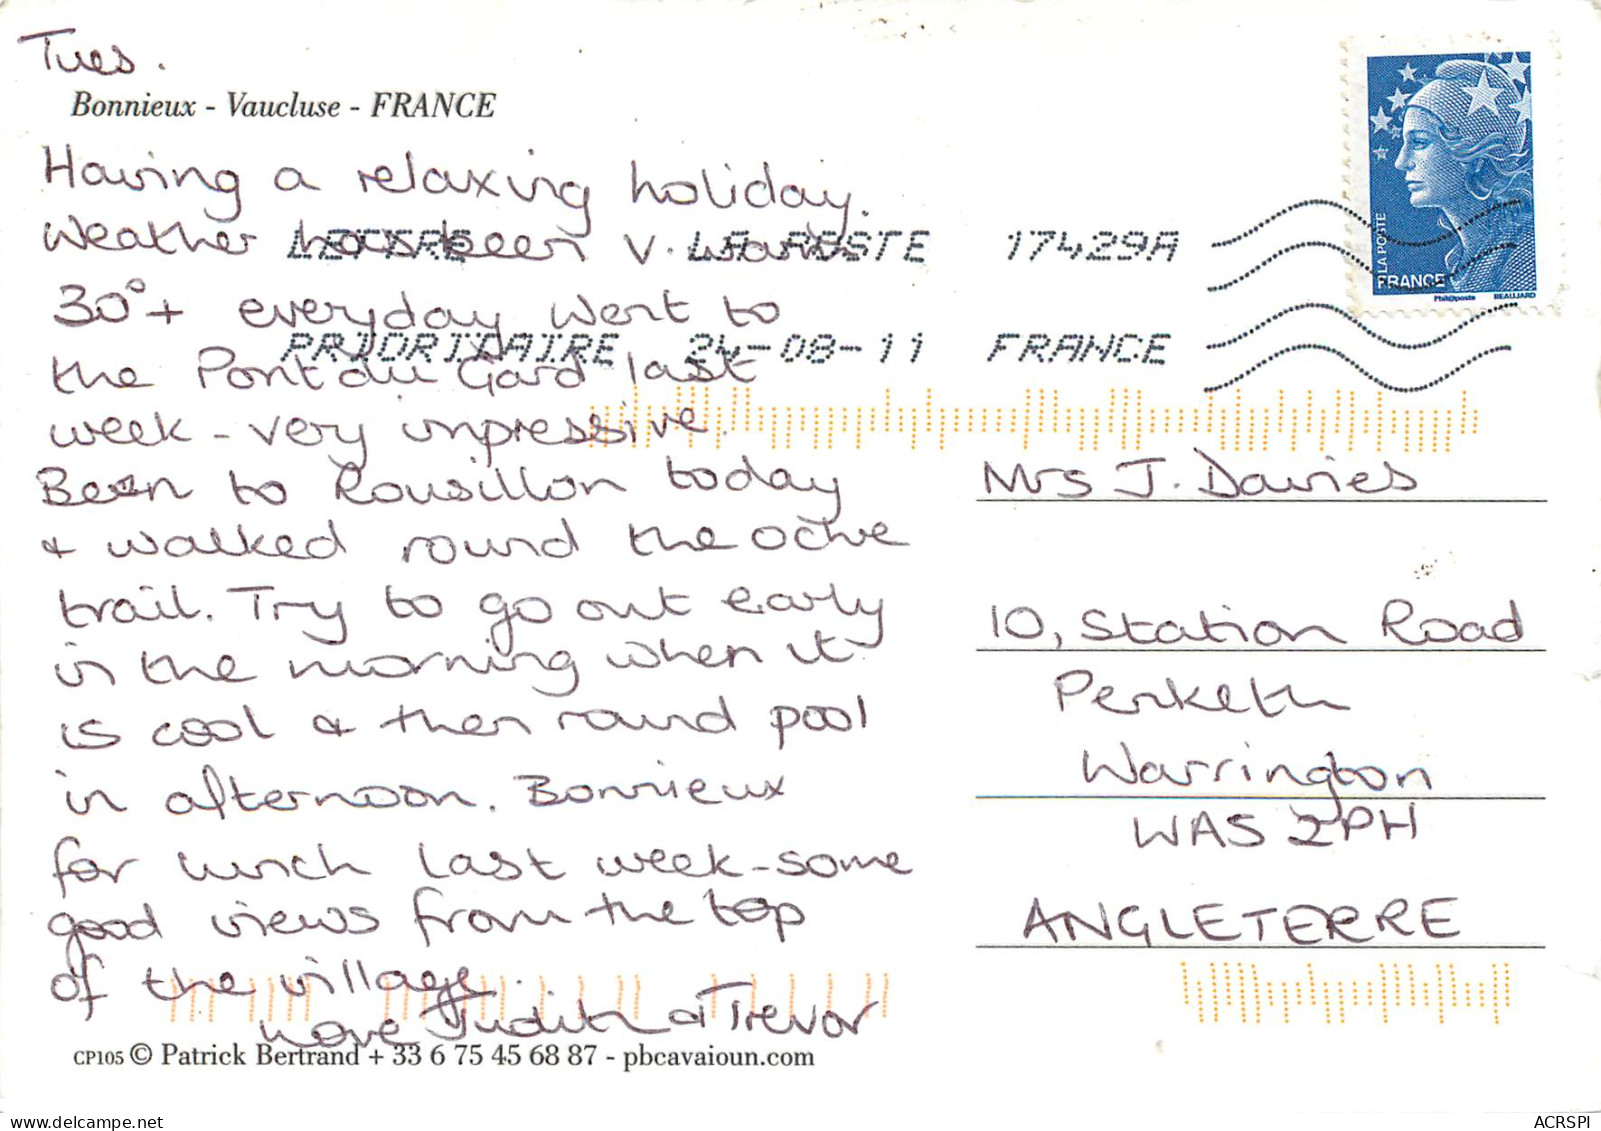 Tues.
Bonnieux - Vaucluse - FRANCE
Having a relaxing holiday.
Weather has been v. warm
30°+ everyday Went to
the Pont du Gard last
week - very impressive.
Been to Rousillon today
& walked round the ochre
trail. Try to go out early
in the morning when it
is cool & then round pool
in afternoon. Bonnieux
for lunch last week - some
good views from the top
of the village.
Love Judith & Trevor
CP105 © Patrick Bertrand + 33 6 75 45 68 87 - pbcavaioun.com
LETTRE LA POSTE 17429A
PRIORITAIRE 24-08-11 FRANCE
LA POSTE
FRANCE
Phil@poste BEAUJARD
Mrs J. Davies
10, Station Road
Penketh
Warrington
WA5 2PH
ANGLETERRE
ACRSPI